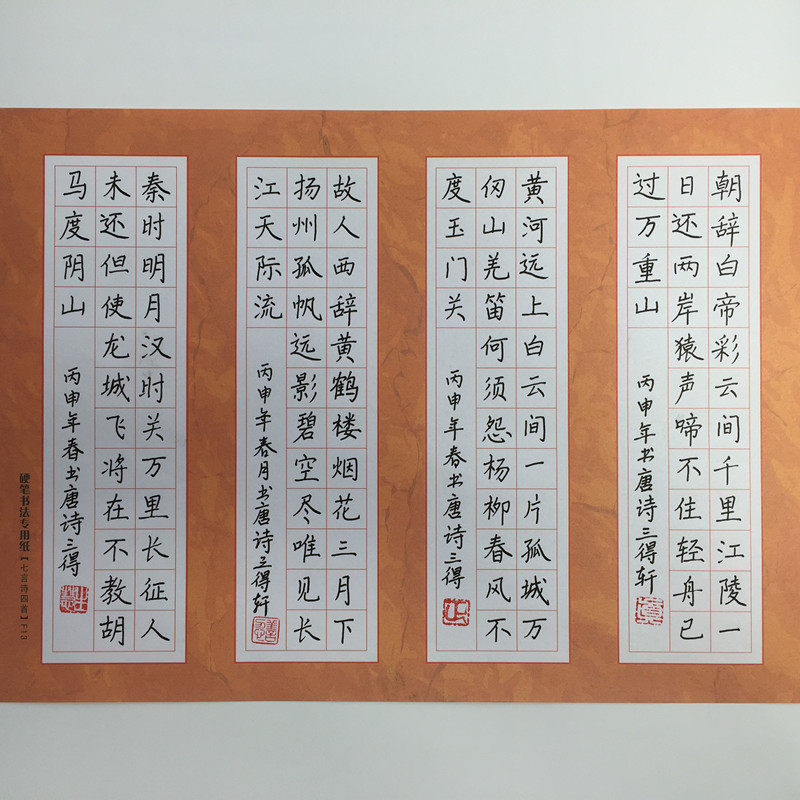 朝辞白帝彩云间千里江陵一
日还两岸猿声啼不住轻舟已
过万重山
丙申年书唐诗三得轩
黄河远上白云间一片孤城万
仞山羌笛何须怨杨柳春风不
度玉门关
丙申年春书唐诗三得
故人西辞黄鹤楼烟花三月下
扬州孤帆远影碧空尽唯见长
江天际流
丙申年春月书唐诗三得轩
秦时明月汉时关万里长征人
未还但使龙城飞将在不教胡
马度阴山
丙申年春书唐诗三得
硬笔书法专用纸【七言诗四首】F13